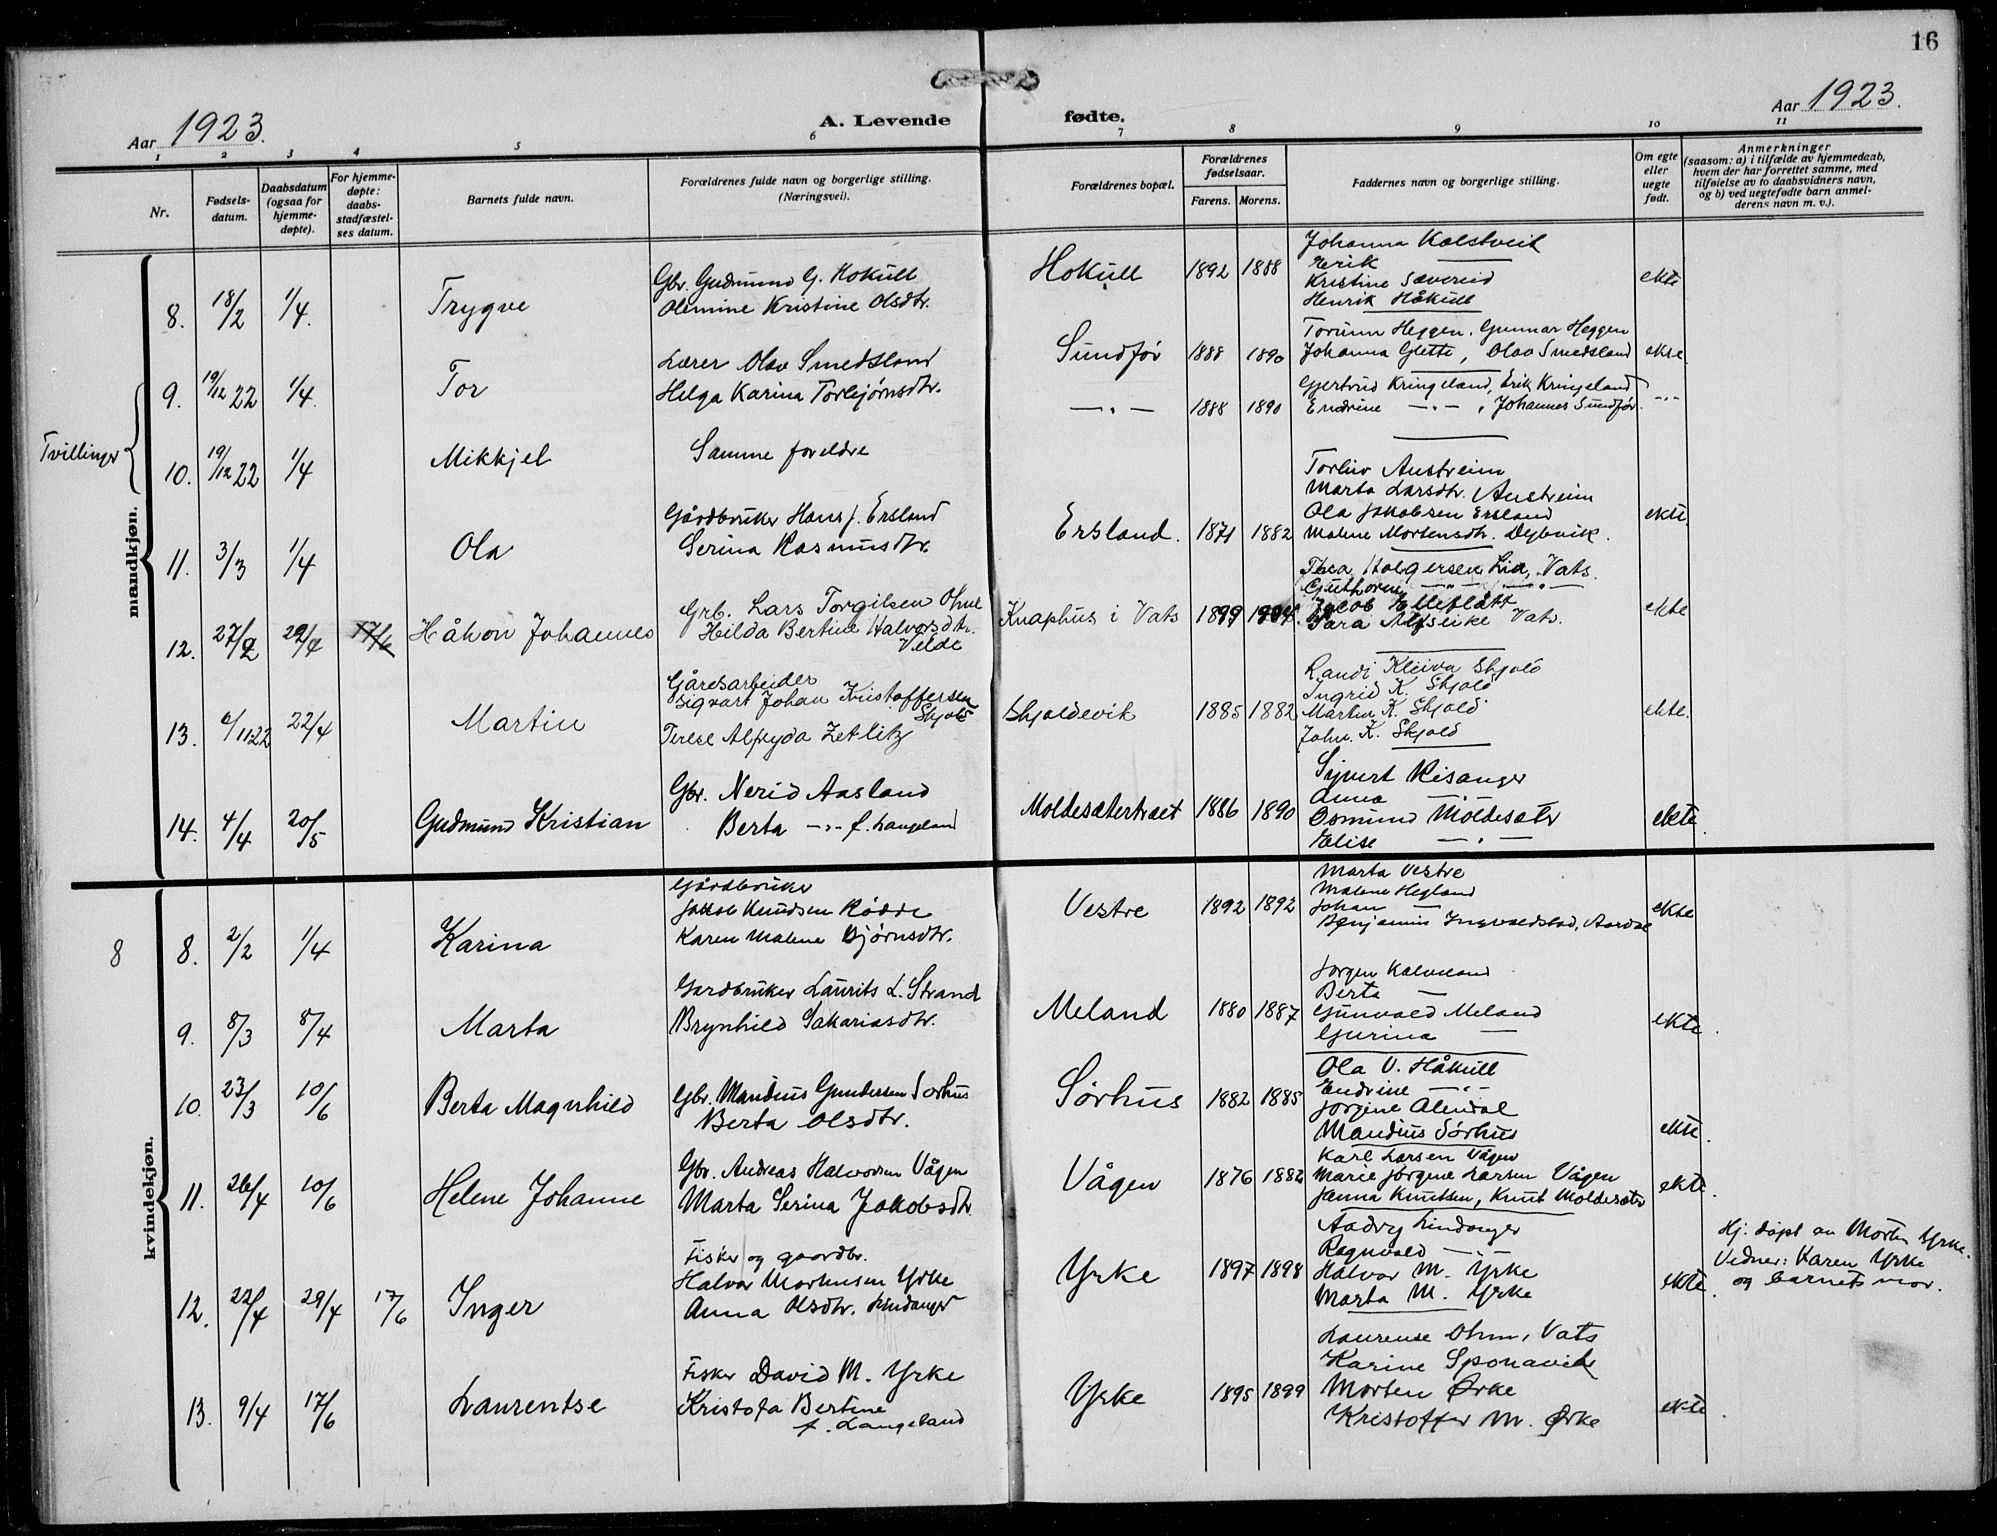 16
Aar 1923.
A. Levende
fødte.
Aar 1923.
1 2 3 4 5 6 7 8 9 10 11
Nr.
Fødsels-
datum.
Daabsdatum
(ogsaa for
hjemme-
døpte).
For hjemme-
døpte:
daabs-
stadfæstel-
ses datum.
Barnets fulde navn.
Forældrenes fulde navn og borgerlige stilling.
(Næringsvei).
Forældrenes bopæl.
Forældrenes
fødselsaar.
Farens. Morens.
Faddernes navn og borgerlige stilling.
Om egte
eller
uegte
født.
Anmerkninger
(saasom: a) i tilfælde av hjemmedaab,
hvem der har forrettet samme, med
tilføielse av to daabsvidners navn,
og b) ved uegtefødte barn anmel-
derens navn m. v.).
mandkjøn.
8. 18/2 1/4. Trygve
Gbr. Gudmund G. Hokull
Olemine Kristine Olsdtr.
Hokull 1892 1888
Johanna Kalstveit
Erik —
Kristine Sævereid
Henrik Håkull
ekte
Tvillinger
9. 19/12 22 1/4. Tor
Lærer Olav Smedsland
Helga Karina Torbjørnsdtr.
Sundfør 1888 1890
Torunn Heggen. Gunnar Heggen
Johanna Glette, Olav Smedsland
ekte.
10. 19/12 22 1/4 Mikkjel
Samme foreldre
— " — 1888 1890
Gjertrud Kringeland, Erik Kringeland
Endrine — " —, Johannes Sundfør.
— " —
11. 3/3 1/4 Ola
Gårdbruker Hans J. Ersland
Serina Rasmusdtr.
Ersland. 1871 1882
Torleiv Austreim
Marta Larsdtr. Austreim
Ola Jakobsen Ersland
Malene Mortensdtr. Dybvik.
ekte.
12. 27/2 29/4 17/6 Håkon Johannes
Grb. Lars Torgilsen Ohm
Hilda Bertine Halvorsdtr.
Velde
Knaphus i Vats 1899 1904.
Thea Holgersen Lia, Vats.
Guthorm — " — — " —
Jacob Elleflått
Sara Alfseike Vats.
ekte
13. 6/11 22 22/4 Martin
Gårdsarbeider
Sigvart Johan Kristoffersen
Skjold
Terese Alfryda Zetlitz
Skjoldevik 1885 1882
Randi Kleiva Skjold
Ingrid K. Skjold
Martin K. Skjold
John. K. Skjold
ekte.
14. 4/4 20/5 Gudmund Kristian
Gbr. Nerid Aasland
Berta — " — f. Langeland
Moldesætertræet 1886 1890
Sjvert Risanger
Anna — " —
Osmund Moldesætr
Elise — " —
ekte.
kvindekjøn.
8
8. 2/2 1/4 Karina
Gårdbruker
Jakob Knudsen Rødde
Karen Malene Bjørnsdtr.
Vestre 1892 1892
Marta Vestre
Malene Hegland
Johan —
Benjamin Ingvaldstad, Aardal
ekte
9. 8/3 8/4 Marta
Gardbruker Laurits L. Strand
Brynhild Sakariasdtr.
Meland 1880 1887
Jørgen Kalveland
Berta —
Gunvald Meland
Gurina —
ekte.
10. 23/3 10/6 Berta Magnhild
Gbr. Mandius Gundersen Sørhus
Berta Olsdtr.
Sørhus 1882 1885
Ola V. Håkull
Endrine — " —
Jørgine Alendal
Mandius Sørhus
ekte.
11. 26/4 10/6 Helene Johanne
Gbr. Andreas Halvorsen Vågen
Marta Serina Jakobsdtr.
Vågen 1876 1882
Karl Larsen Vågen
Marie Jørgine Larsen Vågen
Janna Knutsen, Knut Moldesæter
ekte.
12. 22/4 29/4 17/6 Inger
Fisker og gaardbr.
Halvor Morthusen Yrke
Anna Olsdtr. Lindanger
Yrke 1897 1898
Aadny Lindanger
Ragnvald — " —
Halvor M. Yrke
Marta M. Yrke
ekte.
Hj. døpt av Morten Yrke.
Vidner: Karen Yrke
og barnets mor.
13. 9/4 17/6 Laurentse
Fisker David M. Yrke
Kristofa Bertine
f. Langeland
Yrke 1895 1899
Laurense Ohm, Vats
Karine Sponavik
Morten Ørke
Kristoffer M. Ørke
ekte